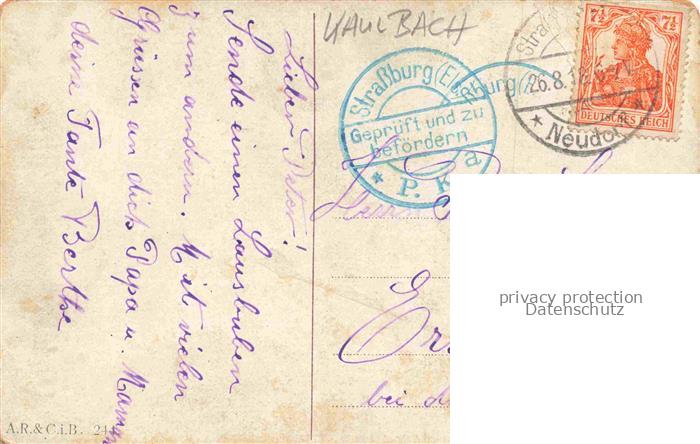 KAULBACH
Lieber Peter!
Sende einen Lausbuben
zum andern. Mit vielen
Grüssen an dich Papa u. Mama
deine Tante Berthe
Straßburg (Els
Geprüft und zu
befördern
* P. K. a
ßburg
Straß
26.8.16
* Neudor *
7½ 7½
DEUTSCHES REICH
Herrn
bei
privacy protection
Datenschutz
A.R.&C.i.B. 24